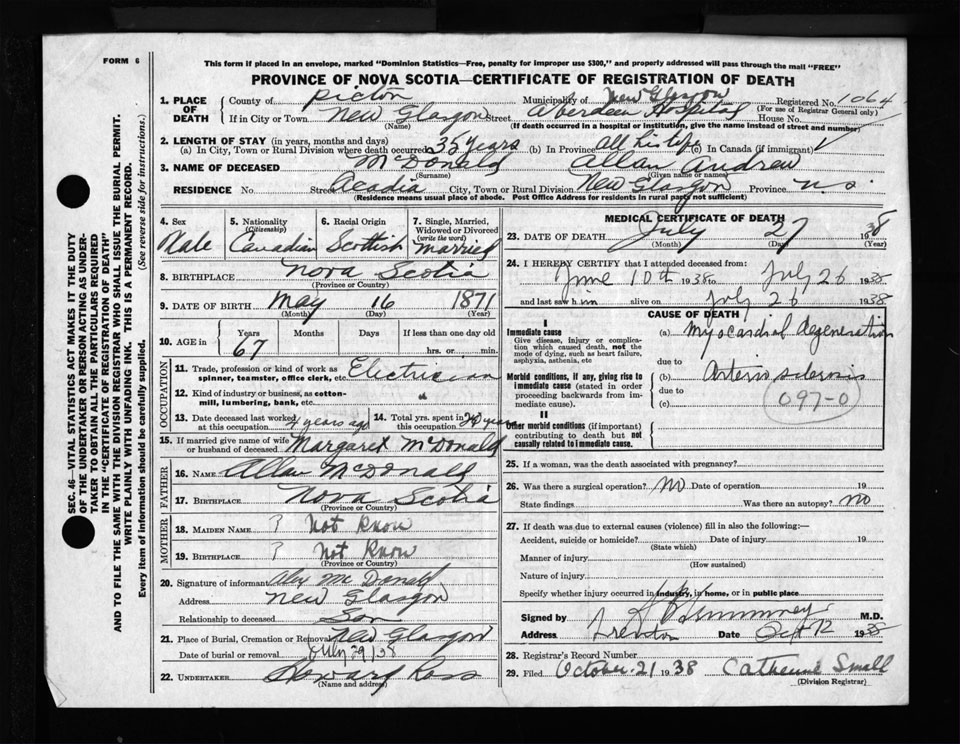 FORM 6
This form if placed in an envelope, marked "Dominion Statistics—Free, penalty for improper use $300," and properly addressed will pass through the mail "FREE"
PROVINCE OF NOVA SCOTIA—CERTIFICATE OF REGISTRATION OF DEATH
1. PLACE OF DEATH
County of Pictou Municipality of New Glasgow Registered No. 1064
(For use of Registrar General only)
If in City or Town New Glasgow Street Aberdeen Hospital House No.
(Name) (If death occurred in a hospital or institution, give the name instead of street and number)
2. LENGTH OF STAY (in years, months and days)
(a) In City, Town or Rural Division where death occurred 35 years (b) In Province All his life (c) In Canada (if immigrant) ✓
3. NAME OF DECEASED McDonald Allan Andrew
(Surname) (Given name or names)
RESIDENCE No. Street Acadia City, Town or Rural Division New Glasgow Province N.S.
(Residence means usual place of abode. Post Office Address for residents in rural parts not sufficient)
4. Sex 5. Nationality (Citizenship) 6. Racial Origin 7. Single, Married, Widowed or Divorced (write the word)
Male Canadian Scottish Married
8. BIRTHPLACE Nova Scotia
(Province or Country)
9. DATE OF BIRTH May 16 1871
(Month) (Day) (Year)
10. AGE in Years Months Days If less than one day old
67 hrs. or min.
OCCUPATION
11. Trade, profession or kind of work as spinner, teamster, office clerk, etc. Electrician
12. Kind of industry or business, as cotton-mill, lumbering, bank, etc.
13. Date deceased last worked at this occupation 4 years ago
14. Total yrs. spent in this occupation years
15. If married give name of wife or husband of deceased Margaret McDonald
FATHER
16. NAME Allan McDonald
17. BIRTHPLACE Nova Scotia
(Province or Country)
MOTHER
18. MAIDEN NAME ? Not Know
19. BIRTHPLACE ? Not Know
(Province or Country)
20. Signature of informant Alex McDonald
Address New Glasgow
Relationship to deceased Son
21. Place of Burial, Cremation or Removal New Glasgow
Date of burial or removal July 29/38
22. UNDERTAKER Howard Ross
(Name and Address)
MEDICAL CERTIFICATE OF DEATH
23. DATE OF DEATH July 27 1938
(Month) (Day) (Year)
24. I HEREBY CERTIFY that I attended deceased from:
June 10th 1938 to July 26 1938
and last saw him alive on July 26 1938
CAUSE OF DEATH
I
Immediate cause
Give disease, injury or complication which caused death, not the mode of dying, such as heart failure, asphyxia, asthenia, etc
(a) Myocardial degeneration
due to
Morbid conditions, if any, giving rise to immediate cause (stated in order proceeding backwards from immediate cause).
(b) Arterio sclerosis
due to
(c)
097-0
II
Other morbid conditions (if important) contributing to death but not causally related to immediate cause.
25. If a woman, was the death associated with pregnancy?
26. Was there a surgical operation? No Date of operation 19
State findings Was there an autopsy? No
27. If death was due to external causes (violence) fill in also the following:—
Accident, suicide or homicide? Date of injury 19
(State which)
Manner of injury
(How sustained)
Nature of injury
Specify whether injury occurred in industry, in home, or in public place
Signed by M.D.
Address Trenton Date Sept 12 1938
28. Registrar's Record Number
29. Filed October 21 1938 Catherine Small
(Division Registrar)
SEC. 46—VITAL STATISTICS ACT MAKES IT THE DUTY
OF THE UNDERTAKER OR PERSON ACTING AS UNDER-
TAKER TO OBTAIN ALL THE PARTICULARS REQUIRED
IN THE "CERTIFICATE OF REGISTRATION OF DEATH"
AND TO FILE THE SAME WITH THE DIVISION REGISTRAR WHO SHALL ISSUE THE BURIAL PERMIT.
WRITE PLAINLY WITH UNFADING INK. THIS IS A PERMANENT RECORD.
Every item of information should be carefully supplied. (See reverse side for instructions.)